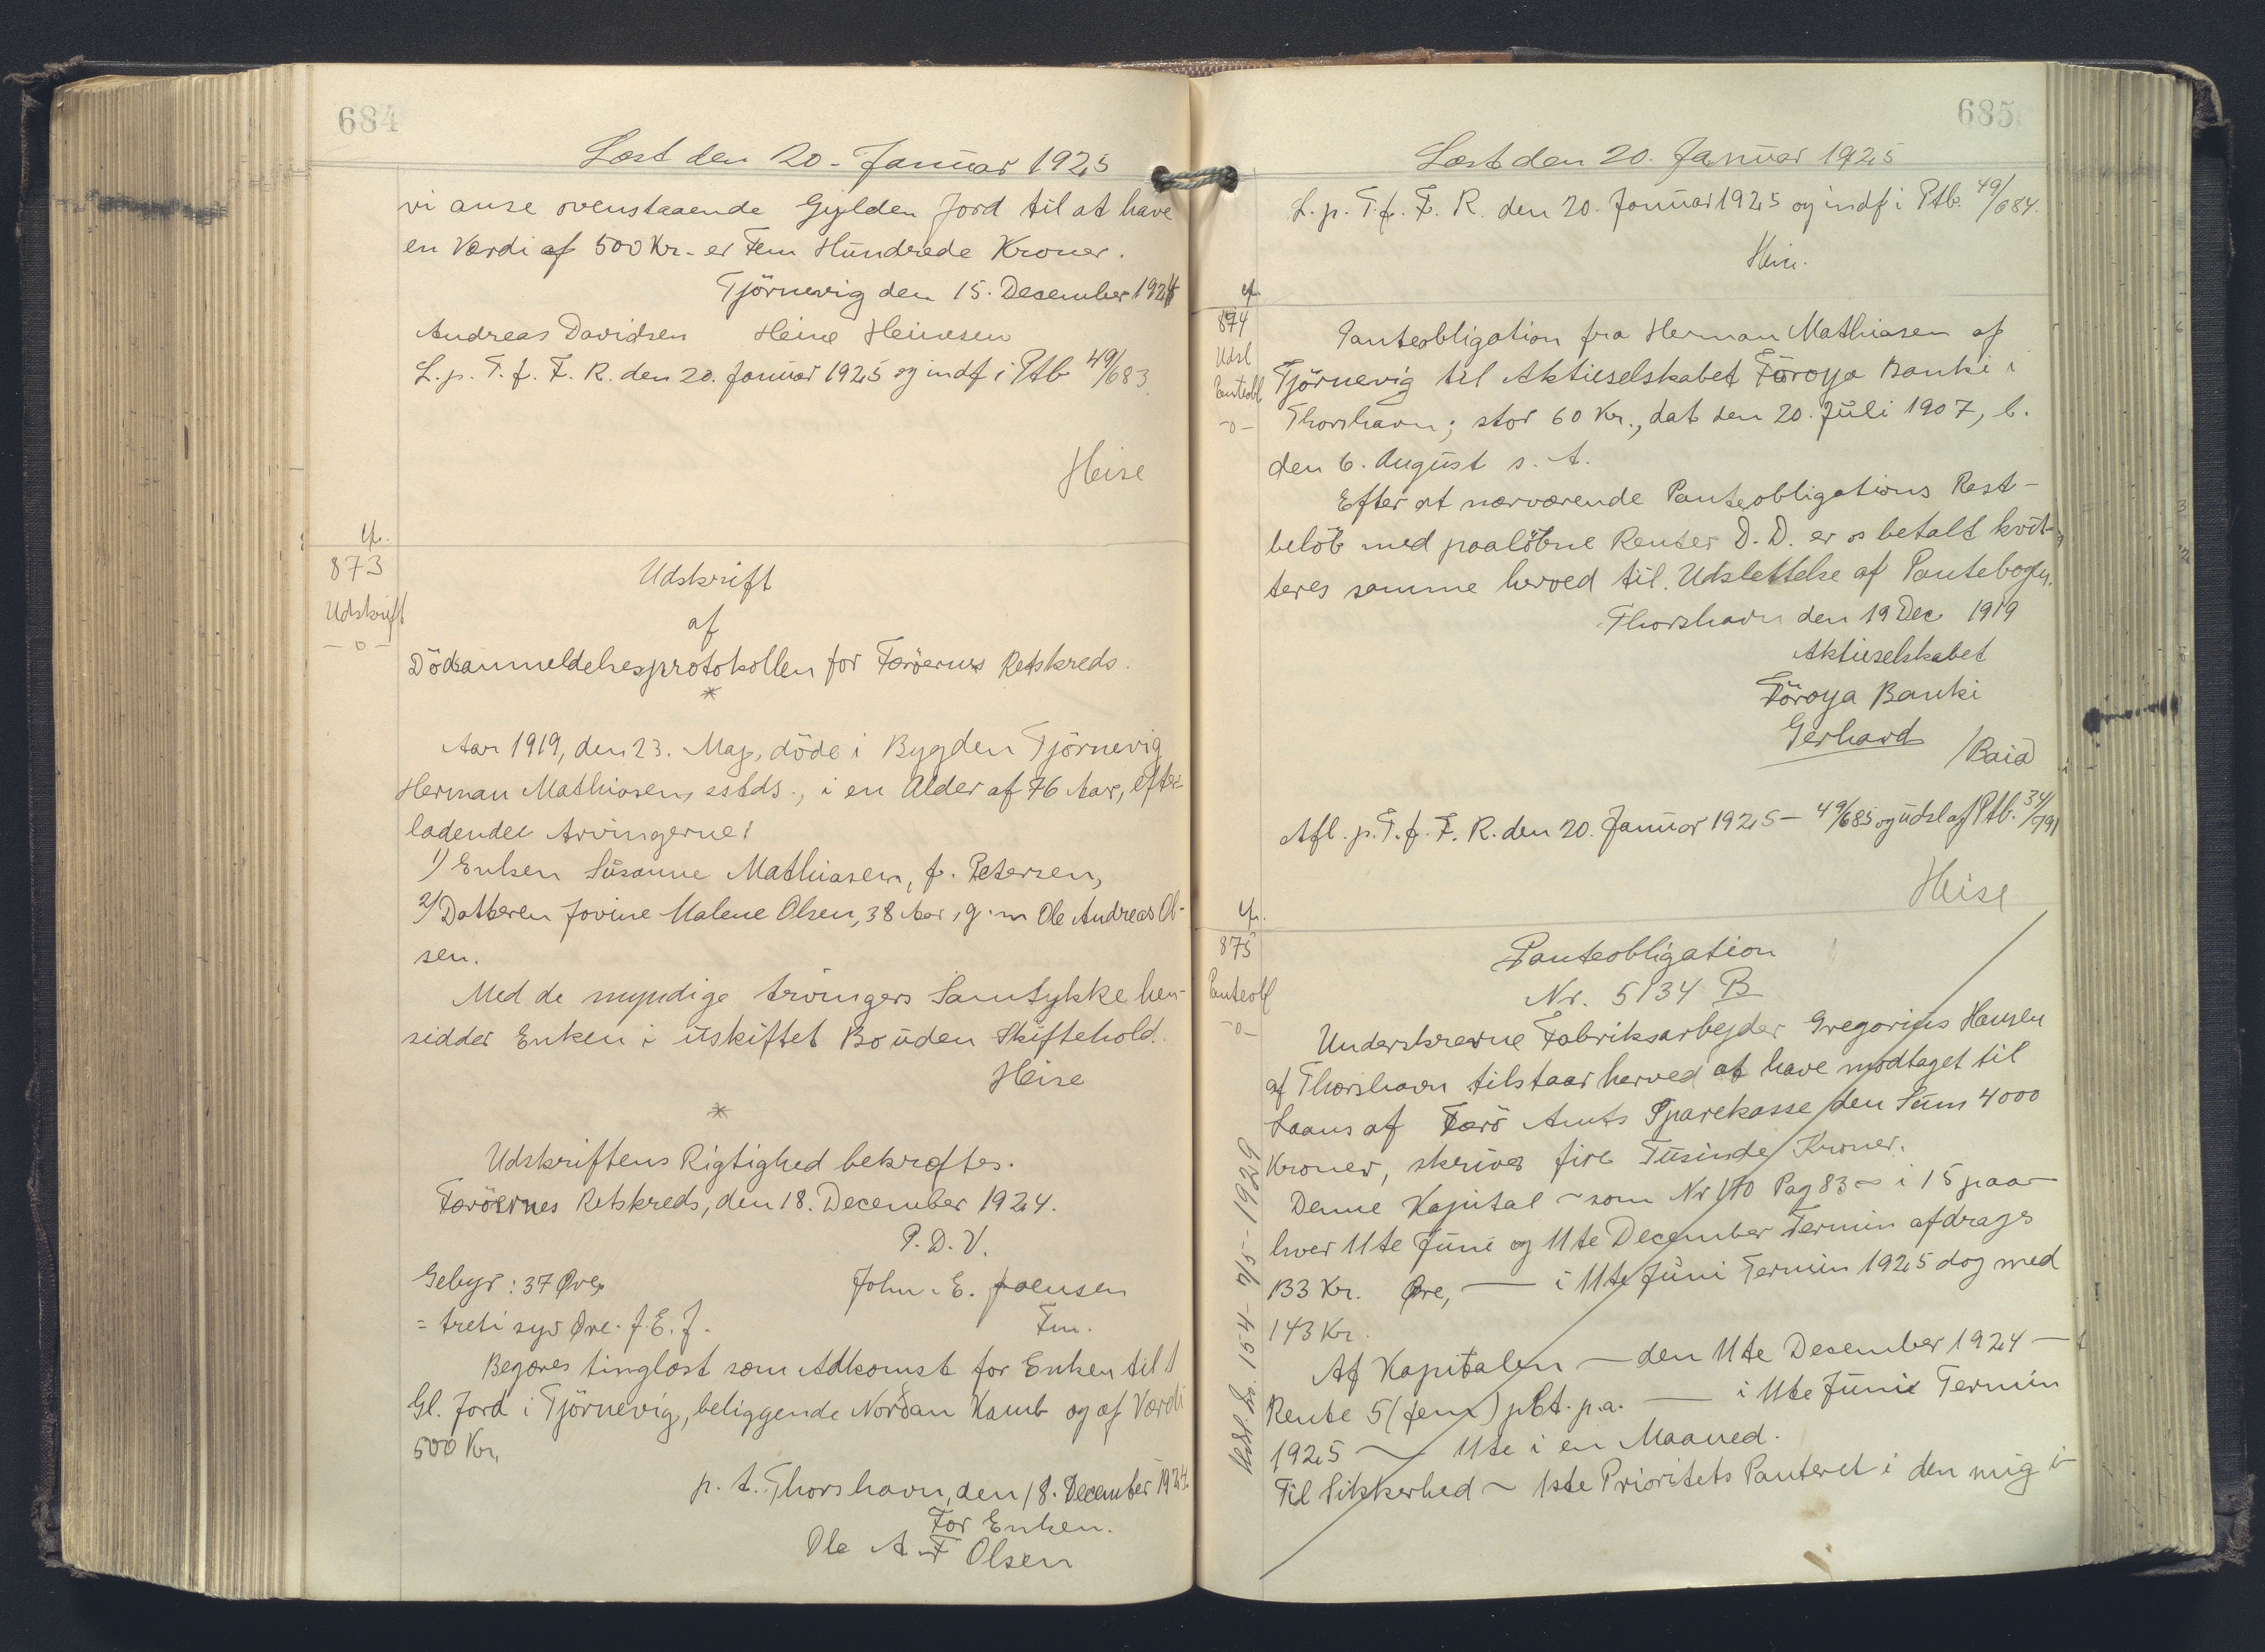 684
Læst den 20. Januar 1925
vi anse ovenstaaende Gylden Jord til at have
en Værdi af 500 Kr. er Fem Hundrede Kroner.
Tjörnevig den 15. December 1924
Andreas Davidsen Heine Heinesen
L. p. T. f. F. R. den 20. Januar 1925 og indf i Ptb 49/683
Heise
873
Udskrift
-o-
Udskrift
af
Dödsanmeldelsesprotokollen for Færöernes Retskreds.
*
Aar 1919, den 23. Maj, döde i Bygden Tjörnevig
Herman Mathiasen, sstds., i en Alder af 76 Aar, efter-
ladende Arvingerne:
1) Enken Susanne Mathiasen, f. Petersen,
2) Datteren Jovine Malene Olsen, 38 Aar, g. m Ole Andreas Ol-
sen.
Med de myndige Arvingers Samtykke hen-
sidder Enken i uskiftet Bo uden Skiftehold.
Heise
*
Udskriftens Rigtighed bekræftes.
Færöernes Retskreds, den 18. December 1924.
P. D. V.
Gebyr: 37 Øre John. E. Joensen
= treti syv Øre. J. E. J. Fm.
Begæres tinglæst som Adkomst for Enken til 1
Gl. Jord i Tjörnevig, beliggende Norðan Kamb og af Værdi
500 Kr.
p. t. Thorshavn, den 18. December 1924.
For Enken.
Ole A. F Olsen
685
Læst den 20. Januar 1925
L. p. T. f. F. R. den 20. Januar 1925 og indf i Ptb. 49/684.
Heise.
874
Udsl
Panteobl
-o-
Panteobligation fra Herman Mathiasen af
Tjörnevig til Aktieselskabet Föroya Banki i
Thorshavn; stor 60 Kr., dat den 20. Juli 1907, l.
den 6. August s. A.
Efter at nærværende Panteobligations Rest-
belöb med paalöbne Renter D. D. er os betalt kvit-
teres samme herved til Udslettelse af Pantebogen.
Thorshavn den 19 Dec 1919
Aktieselskabet
Föroya Banki
Gerhard
/Baid
Afl. p. T. f. F. R. den 20. Januar 1925 – 49/685 og udsl af Ptb. 34/791
Heise
875
Panteobl
-o-
Panteobligation
Nr. 5134 B
Underskrevne Fabriksarbejder Gregorius Hansen
af Thorshavn tilstaar herved at have modtaget til
Laans af Færö Amts Sparekasse den Sum 4000
Kroner, skriver fire Tusinde Kroner.
Denne Kapital ~ som Nr 170 Pag 83 ~ i 15 paa
hver 11te Juni og 11te December Termin afdrags
133 Kr. Øre, — i 11te Juni Termin 1925 dog med
143 Kr.
Af Kapitalen — den 11te Desember 1924 —
Rente 5 (fem) pCt. p. a. — i 11te Juni Termin
1925 ~ 11te i en Maaned.
Til Sikkerhed ~ 1ste Prioritets Panteret i den mig i